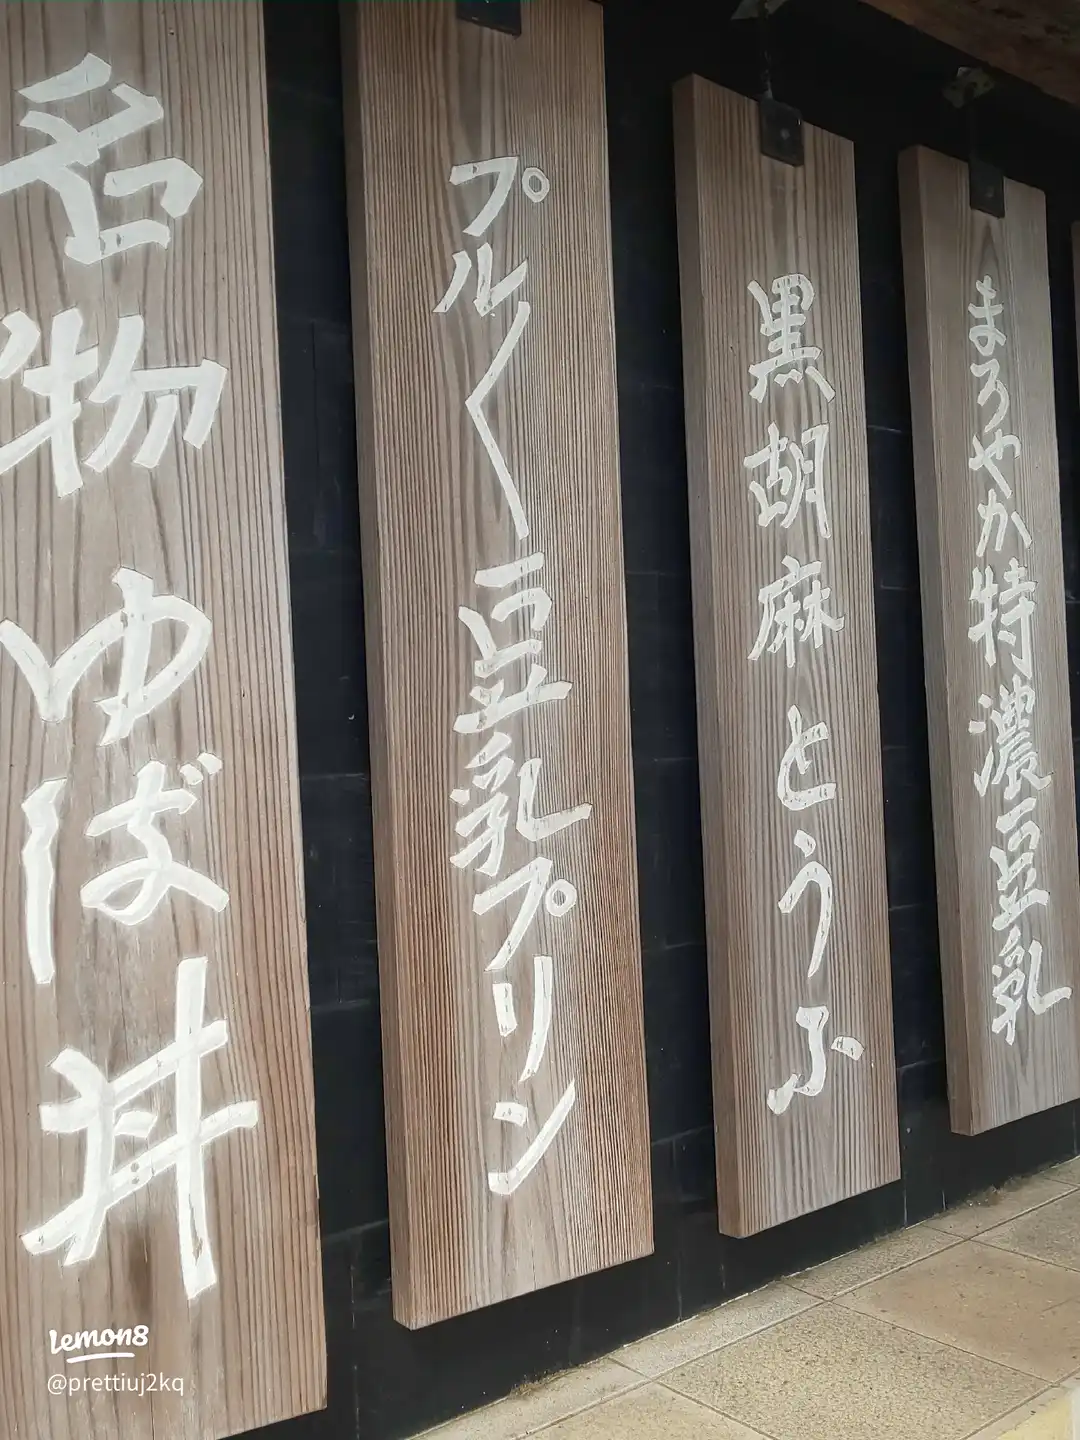 まろやか特濃豆乳
黒胡麻とうふ
プル〱豆乳プリン
名物ゆば丼
lemon8
@prettiuj2kq